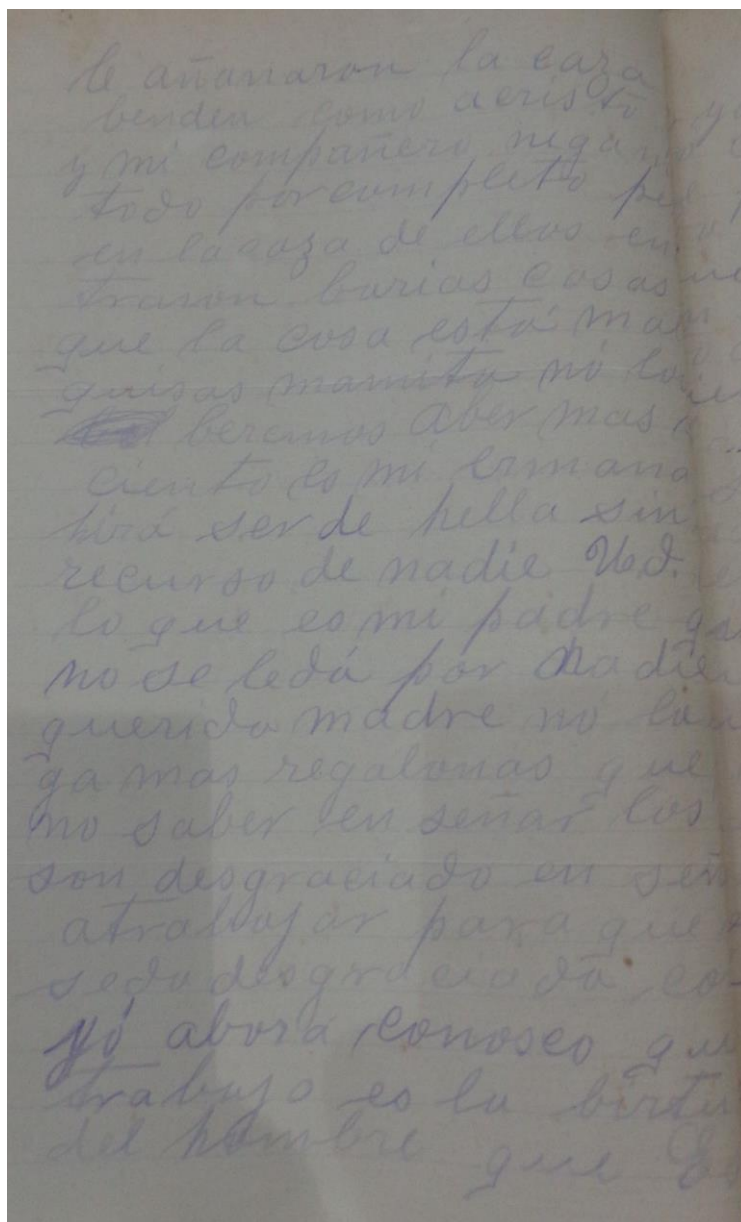 le añanaron la caza
benden como acristo
y mi compañero nega
todo por completo
en lacaza de ellos en
traron barias cosas
que la cosa está mal
quisas mamita nó lo
beremos aber mas
ciento es mi ermana
hirá ser de hella sin
recurso de nadie Ud.
lo que es mi padre
no se ledá por nadie
querida madre nó la
ga mas regalonas que
no saber en señar los
son desgraciado en señ
atrabajar para que
sedadesgraciada co-
yó ahora conosco que
trabajo es la birtu
del hombre que